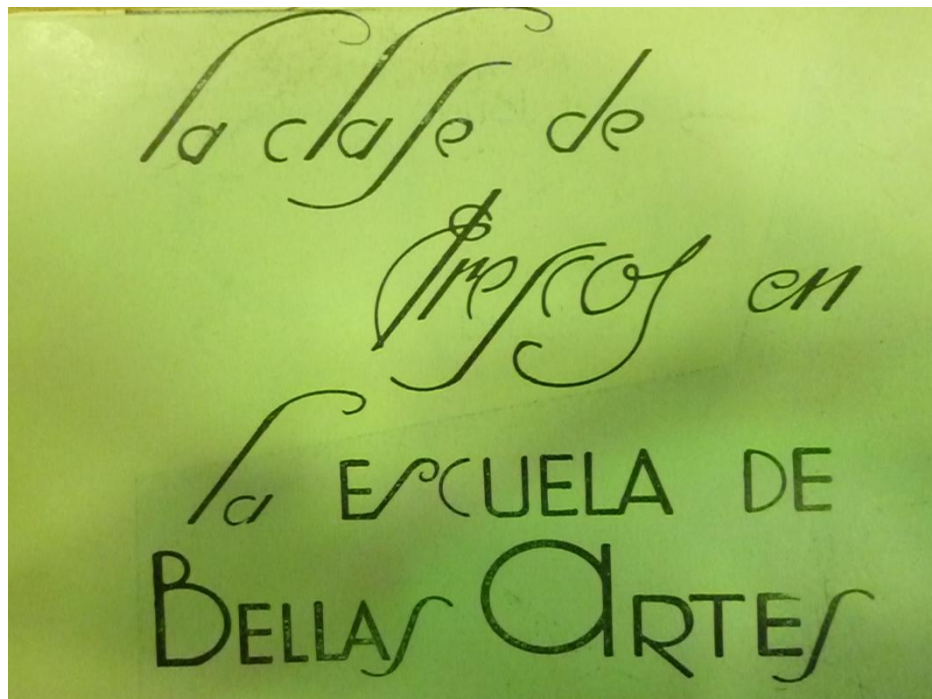 la clase de
frescos en
la ESCUELA DE
BELLAS ARTES